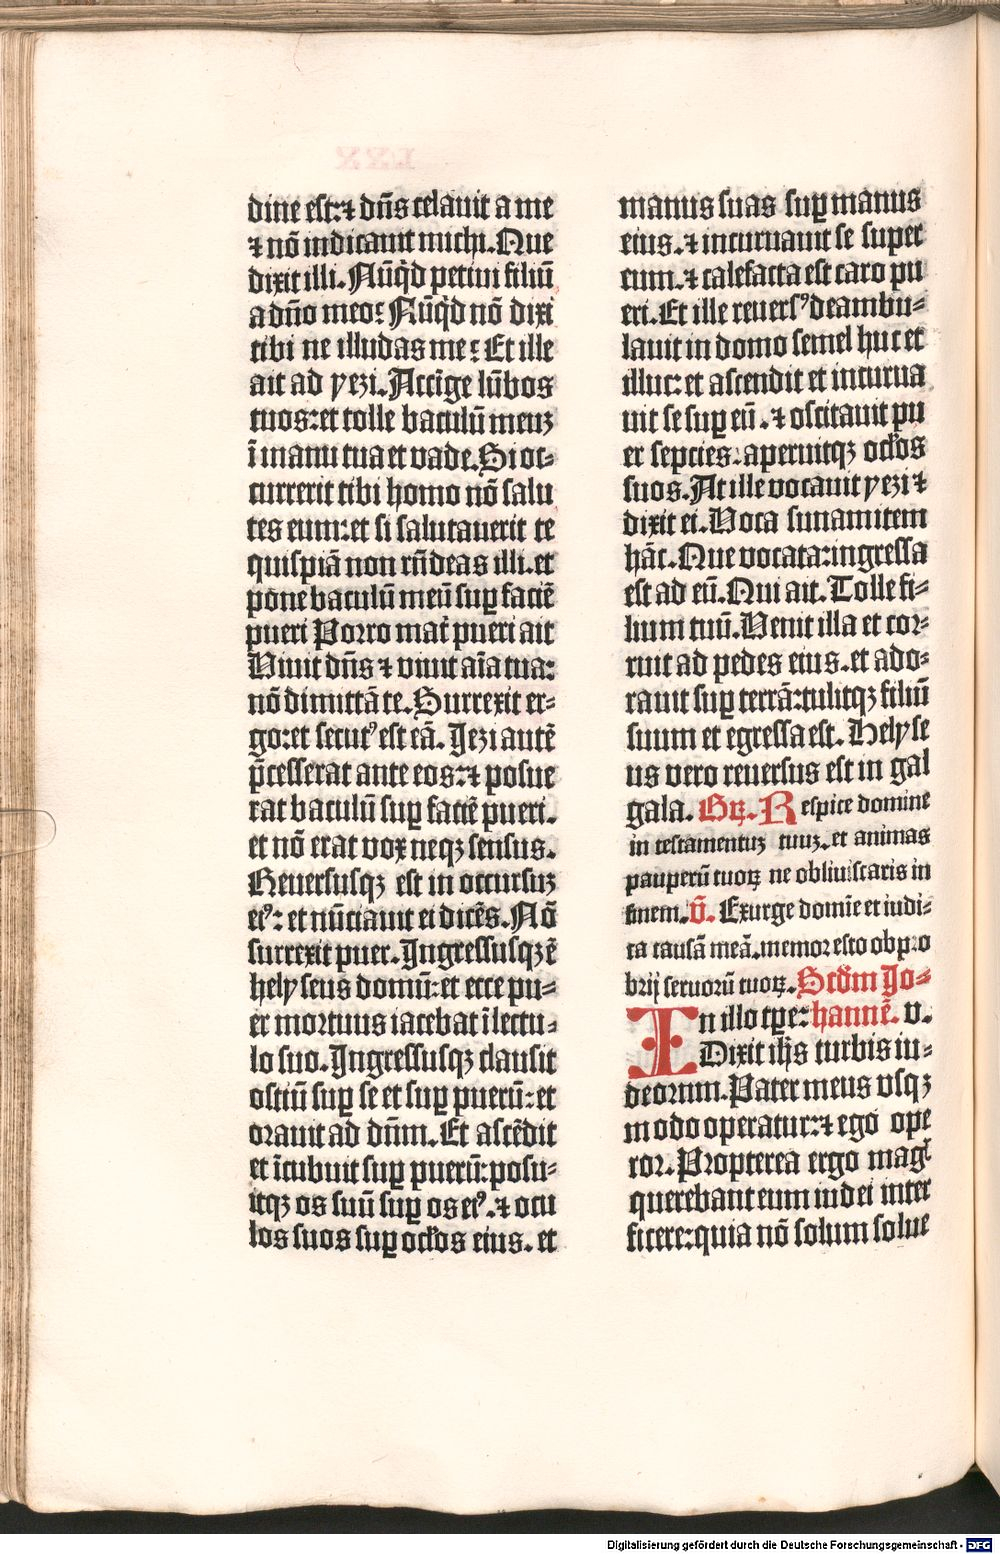 dine est:⁊ dn̄s celauit a me
⁊ nō indicauit michi. Que
dixit illi. Nūq̇d petiui filiū
a dn̄o meo: Nūq̇d nō dixi
tibi ne illudas me: Et ille
ait ad yezi. Accīge lūbos
tuos:et tolle baculū meuz
ī manu tua et vade. Si oc-
currerit tibi homo nō salu
tes eum:et si salutauerit te
quispiā non rn̄deas illi. et
pone baculū meū suꝑ faciē
pueri Porro mat̄ pueri ait
Viuit dn̄s ⁊ viuit aīa tua:
nō dimittā te. Surrexit er-
go:et secutꝰ est eā. Jezi autē
p̄cesserat ante eos:⁊ posue
rat baculū suꝑ faciē pueri.
et nō erat vox neqꝫ sensus.
Reuersusqꝫ est in occursuz
eiꝰ: et nūciauit ei dicēs. Nō
surrexit puer. Ingressusqꝫ ē
helyseus domū: et ecce pu-
er mortuus iacebat ī lectu-
lo suo. Ingressusqꝫ clausit
ostiū suꝑ se et suꝑ puerū: et
orauit ad dn̄m. Et ascēdit
et īcubuit suꝑ puerū: posu-
itqꝫ os suū suꝑ os eiꝰ. ⁊ ocu
los suos suꝑ oc̄los eius. et
manus suas suꝑ manus
eius. ⁊ incuruauit se super
eum. ⁊ calefacta est caro pu
eri. Et ille reuersꝰ deambu-
lauit in domo semel huc et
illuc: et ascendit et incurua
uit se suꝑ eū. ⁊ oscitauit pu
er septies. aperuitqꝫ oc̄los
suos. At ille vocauit yezi ⁊
dixit ei. Voca sunamitem
hāc. Que vocata: ingressa
est ad eū. Qui ait. Tolle fi-
lium tuū. Venit illa et cor-
ruit ad pedes eius. et ado-
rauit suꝑ terrā: tulitqꝫ filiū
suum et egressa est. Helyse
us vero reuersus est in gal
gala. Gꝛ. Respice domine
in testamentuz tuuz. et animas
pauperū tuoꝝ ne obliuiscaris in
finem. v̄. Exurge domīe et iudi-
ca causā meā. memor esto obpro
brij seruorū tuoꝝ. Scd̄m Jo-
In illo tp̄e: hannē. v.
Dixit ih̄s turbis iu-
deorum. Pater meus vsqꝫ
modo operatur:⁊ ego ope
ror. Propterea ergo magꝭ
querebant eum iudei inter
ficere: quia nō solum solue
Digitalisierung gefördert durch die Deutsche Forschungsgemeinschaft - DFG